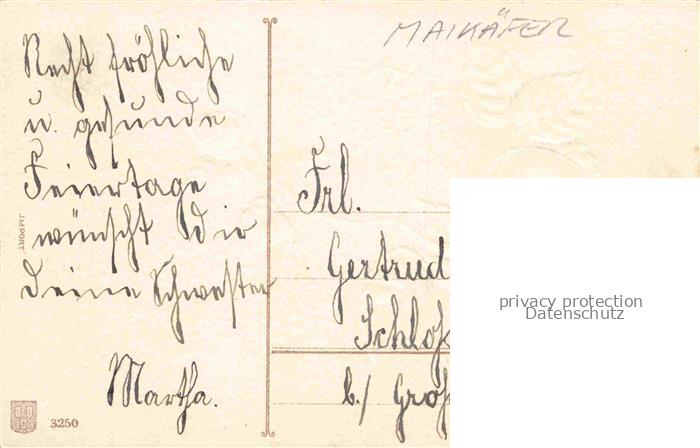 MAIKÄFER
Recht fröhliche
u. gesunde
Feiertage
wünscht Dir
Deine Schwester
Martha.
Frl.
Gertrud
Schloß
b./ Groß
JMPORT
3250
privacy protection
Datenschutz